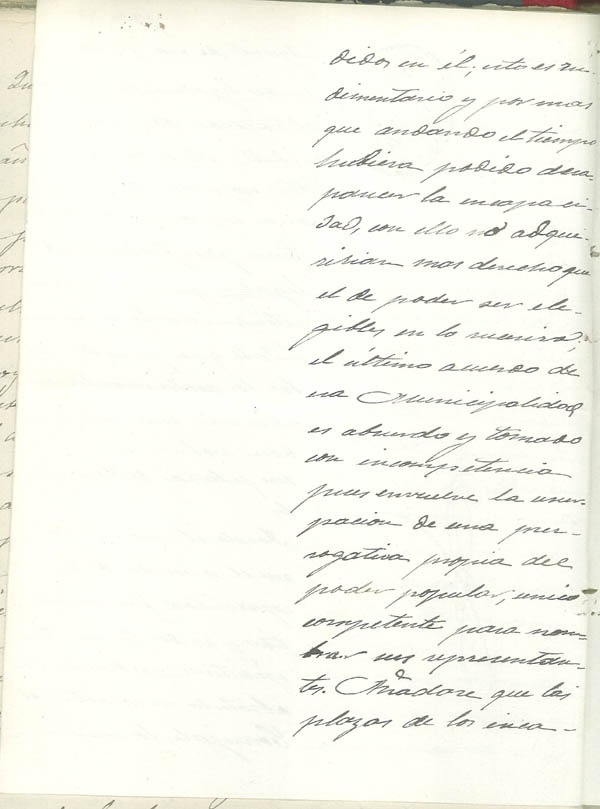 didos en él; esto es ru-
dimentario y por mas
que andando el tiempo
hubiera podido desa-
parecer la incapaci-
dad, con ello no adqui-
ririan mas derecho que
el de poder ser ele-
gibles en lo sucesivo;
el último acuerdo de
esa Municipalidad
es absurdo y tomado
con incompetencia
pues envuelve la usur-
pacion de una prer-
rogativa propia del
poder popular, unico
competente para nom-
brar sus representan-
tes. Añadase que las
plazas de los inca-